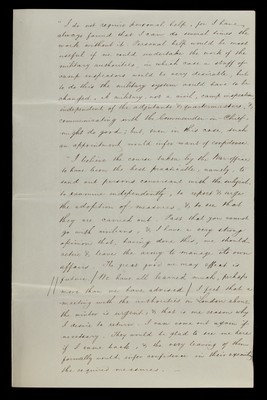 "I do not require personal help, for I have
always found that I can do several times the
work without it. Personal help would be most
useful if we could undertake the work of the
military authorities, in which case a staff of
camp inspectors would be very desirable, but
to do this the military system would have to be
changed. A military not a civil, camp inspector
independent of the adjutants & quartermasters, &
communicating with the Commander in Chief.
might do good; but, even in this case, such
an appointment would infer want of confidence.
"I believe the course taken by the War Office
to have been the best practicable, namely, to
send out persons conversant with the subject
to examine independently, to report & urge
the adoption of measures, & to see that
they are carried out. Past that you cannot
go with wisdom, & I have a very strong
opinion that having done this, we should
retire & leave the army to manage its own
affairs. The great good we may effect is
future. / We have all learned much, perhaps
more than we have advised / I feel that a
meeting with the authorities in London about
the winter is urgent, & that is one reason why
I desire to return. I can come out again if
necessary. They would be glad to see me here
if I came back, & the very leaving of them
formally would infer confidence in their
the required measures. —